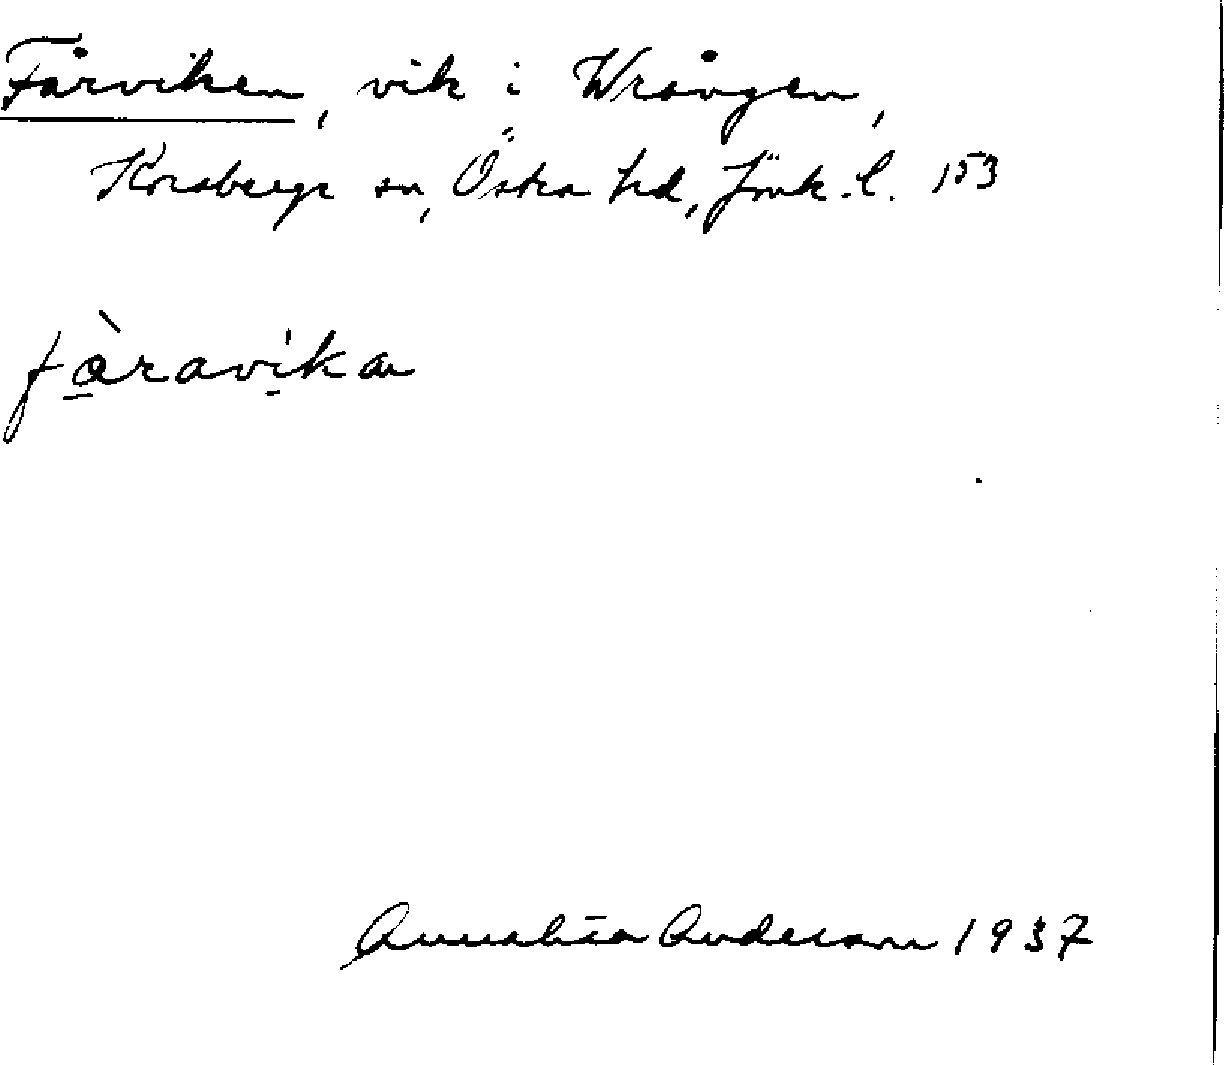 Fårviken, vik i Wrången,
Korsberga sn, Östra hd, Jönk. l. 153
fàravikan
Annalisa Anderson 1937